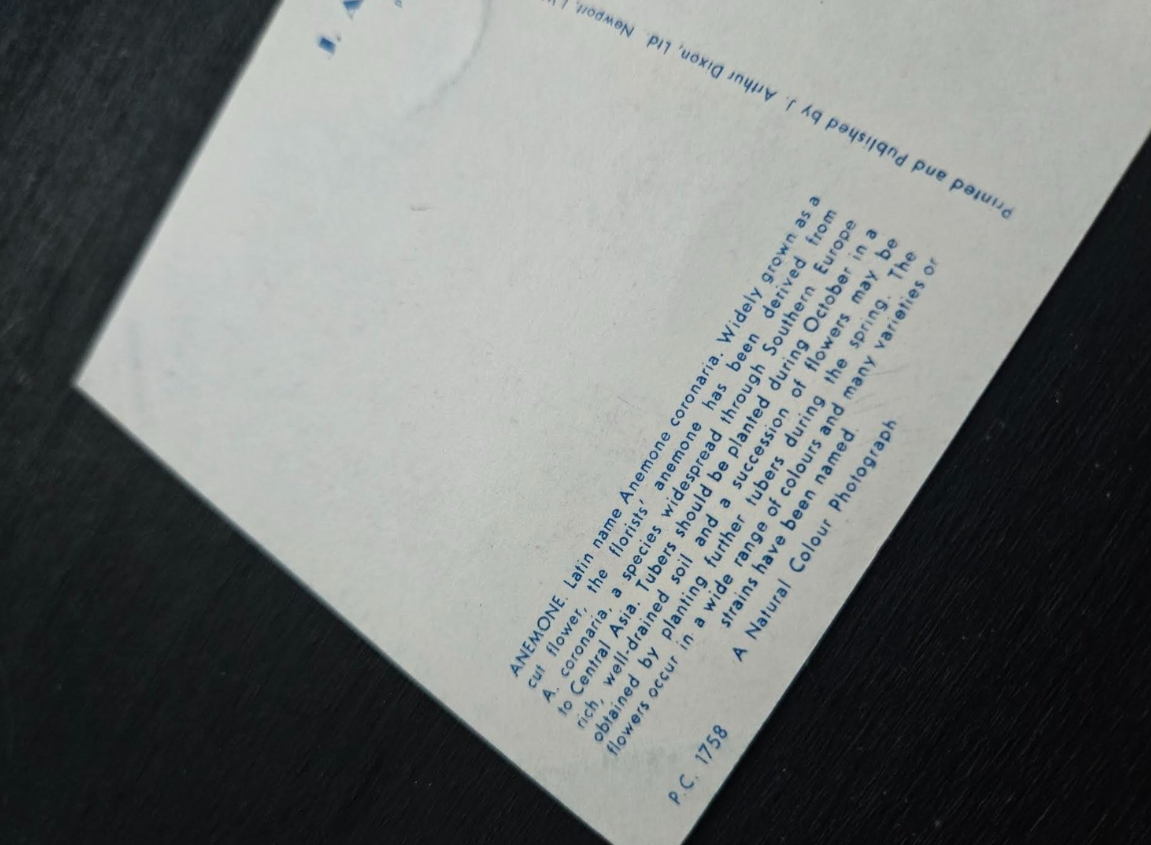 ANEMONE. Latin name Anemone coronaria. Widely grown as a
cut flower, the florists' anemone has been derived from
A. coronaria, a species widespread through Southern Europe
to Central Asia. Tubers should be planted during October in a
rich, well-drained soil and a succession of flowers may be
obtained by planting further tubers during the spring. The
flowers occur in a wide range of colours and many varieties or
strains have been named.
A Natural Colour Photograph
P.C. 1758
Printed and Published by J. Arthur Dixon, Ltd. Newport,